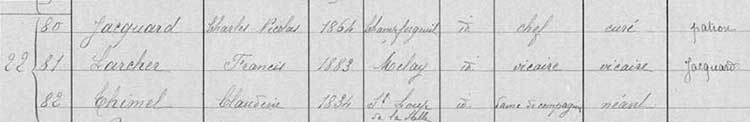 80 Jacquard Charles Nicolas 1864 id chef curé patron
22 81 Larcher Francis 1883 Melay id vicaire vicaire Jacquard
82 Thimel Claudine 1834 St Loup id dame de compagnie néant
de la Salle